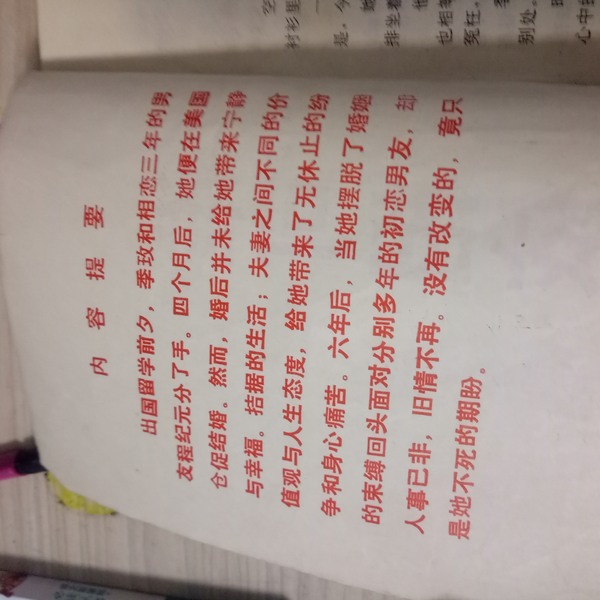 内容提要
出国留学前夕，季玫和相恋三年的男
友程纪元分了手。四个月后，她便在美国
仓促结婚。然而，婚后并未给她带来宁静
与幸福。拮据的生活；夫妻之间不同的价
值观与人生态度，给她带来了无休止的纷
争和身心痛苦。六年后，当她摆脱了婚姻
的束缚回头面对分别多年的初恋男友，却
人事已非，旧情不再。没有改变的，竟只
是她不死的期盼。